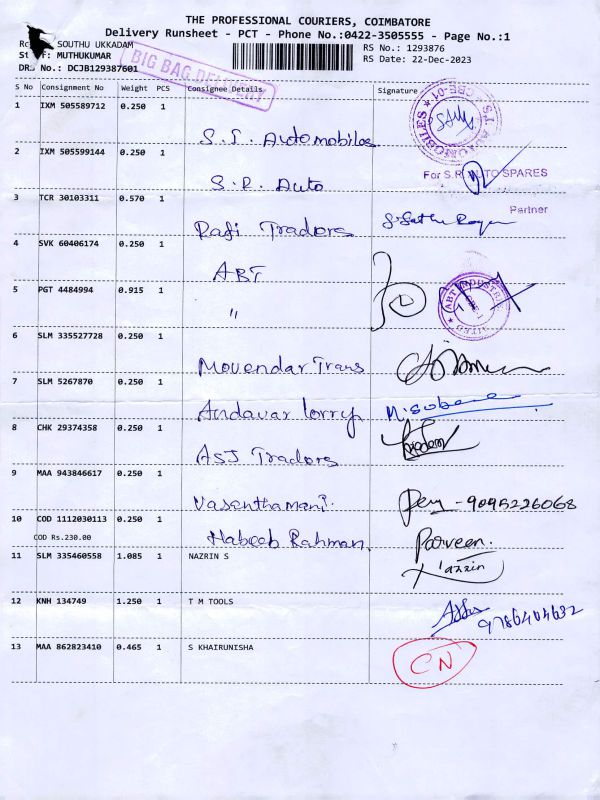 THE PROFESSIONAL COURIERS, COIMBATORE
Delivery Runsheet - PCT - Phone No.:0422-3505555 - Page No.:1
SOUTHU UKKADAM RS No.: 1293876
F: MUTHUKUMAR RS Date: 22-Dec-2023
DRS No.: DCJB129387601
BIG BAG DELIVERY
S No Consignment No Weight PCS Consignee Details Signature
1 IXM 505589712 0.250 1 S.I. Automobiles
S.I. AUTOMOBILES CBE-01
2 IXM 505599144 0.250 1 S.R. Auto
For S.R. AUTO SPARES
Partner
3 TCR 30103311 0.570 1 Rafi Tradors
4 SVK 60406174 0.250 1 ABT
5 PGT 4484994 0.915 1 "
6 SLM 335527728 0.250 1 Movendar Trans
7 SLM 5267870 0.250 1 Andavar lorry
8 CHK 29374358 0.250 1 ASJ Tradors
9 MAA 943846617 0.250 1 Vasanthamani. - 9095226068
10 COD 1112030113 0.250 1 Habeeb Rahman. Parveen.
COD Rs.230.00
11 SLM 335460558 1.085 1 NAZRIN S
12 KNH 134749 1.250 1 T M TOOLS 9786404632
13 MAA 862823410 0.465 1 S KHAIRUNISHA CN